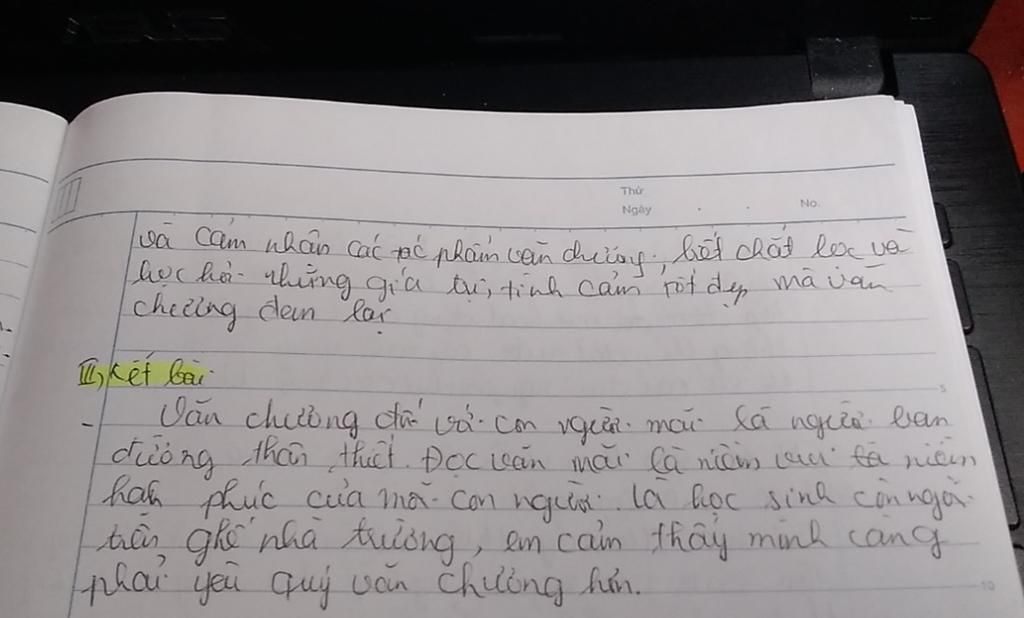 ASUS
Thứ
Ngày . . No.
và cảm nhận các tác phẩm văn chương, biết chắt lọc và
học hỏi những giá trị, tình cảm tốt đẹp mà văn
chương đem lại
III, Kết bài
5
- Văn chương đối với con người mãi là người bạn
đường thân thiết. Đọc văn mãi là niềm vui là niềm
hạnh phúc của mỗi con người. Là học sinh còn ngồi
trên ghế nhà trường, em cảm thấy mình càng
phải yêu quý văn chương hơn.
10